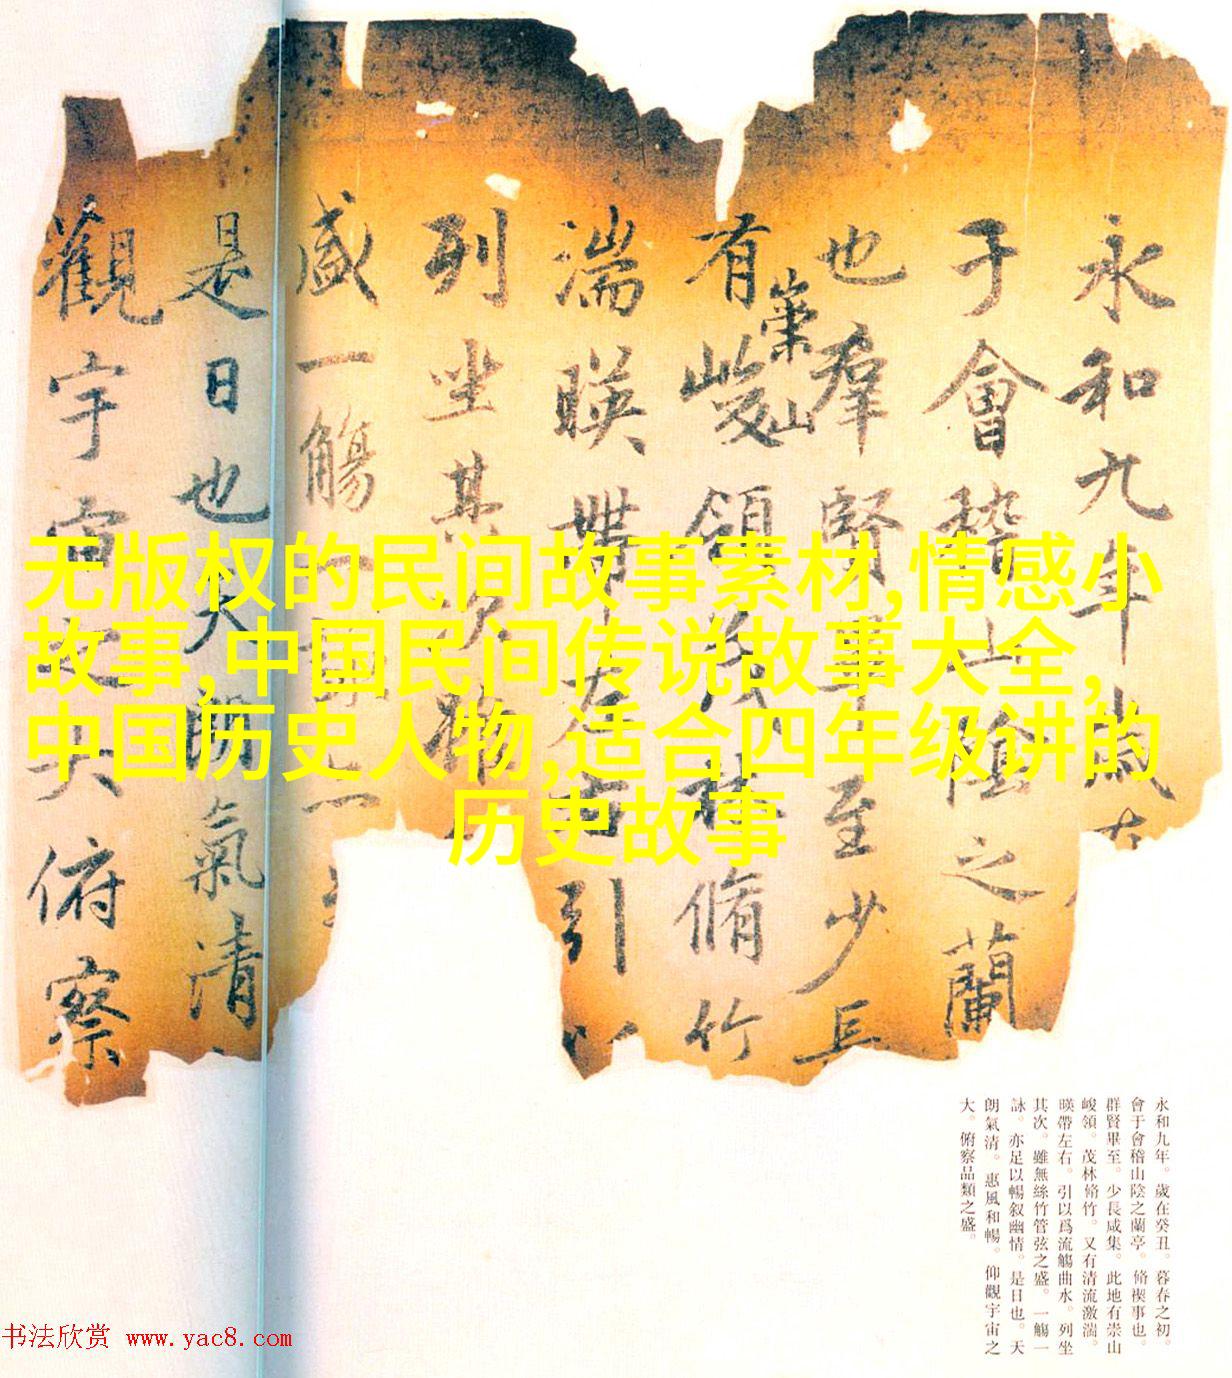 永和九年歲在
于會稽山陰之蘭
也羣賢畢至少長
有崇山峻領茂林脩竹
湍暎帶左右引以
列坐其次雖
盛一觴一詠
是日也天朗氣清
觀宇宙之大俯察
无版权的民间故事素材,情感小
故事,中国民间传说故事大全,
中国历史人物,适合四年级讲的
历史故事
永和九年。歲在癸丑。暮春之初。
會于會稽山陰之蘭亭。脩禊事也。
群賢畢至。少長咸集。此地有崇山
峻領。茂林脩竹。又有清流激湍。
暎帶左右。引以爲流觴曲水。列坐
其次。雖無絲竹管弦之盛。一觴一
詠。亦足以暢叙幽情。是日也。天
朗氣清。惠風和暢。仰觀宇宙之
大。俯察品類之盛。
书法欣赏 www.yac8.com